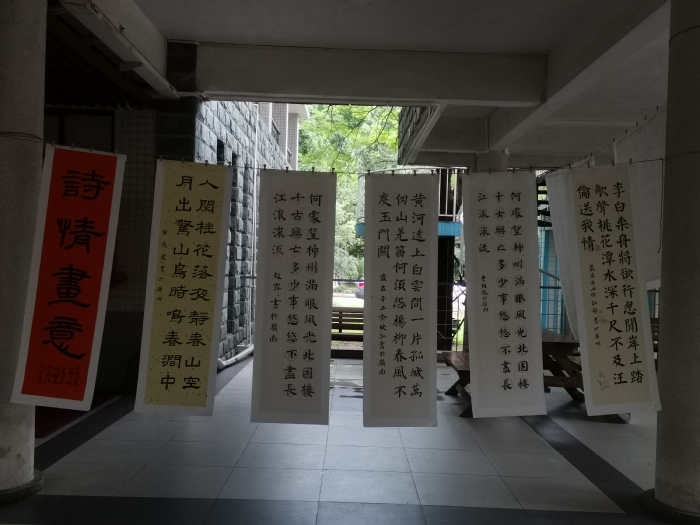 詩情畫意
人閑桂花落夜靜春山空
月出驚山鳥時鳴春澗中
何處望神州滿眼風光北固樓
千古興亡多少事悠悠不盡長
江滾滾流
黃河遠上白雲間一片孤城萬
仞山羌笛何須怨楊柳春風不
度玉門關
何處望神州滿眼風光北固樓
千古興亡多少事悠悠不盡長
江滾滾流
李白乘舟將欲行忽聞岸上踏
歌聲桃花潭水深千尺不及汪
倫送我情